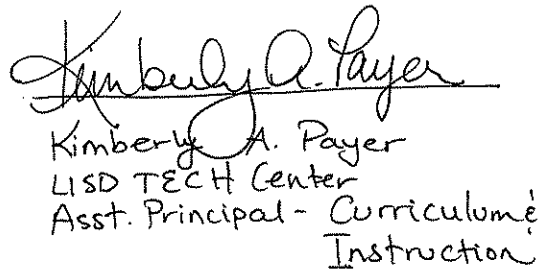 Kimberly A. Payer
Kimberly A. Payer
LISD TECH Center
Asst. Principal - Curriculum &
Instruction